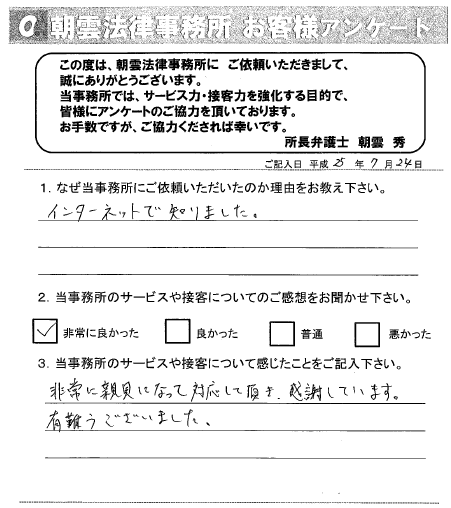 朝雲法律事務所 お客様アンケート
この度は、朝雲法律事務所に ご依頼いただきまして、
誠にありがとうございます。
当事務所では、サービス力・接客力を強化する目的で、
皆様にアンケートのご協力を頂いております。
お手数ですが、ご協力くだされば幸いです。
所長弁護士 朝雲 秀
ご記入日 平成 25 年 7 月 24 日
1. なぜ当事務所にご依頼いただいたのか理由をお教え下さい。
インターネットで知りました。
2. 当事務所のサービスや接客についてのご感想をお聞かせ下さい。
非常に良かった 良かった 普通 悪かった
3. 当事務所のサービスや接客について感じたことをご記入下さい。
非常に親身になって対応して頂き、感謝しています。
有難うございました。